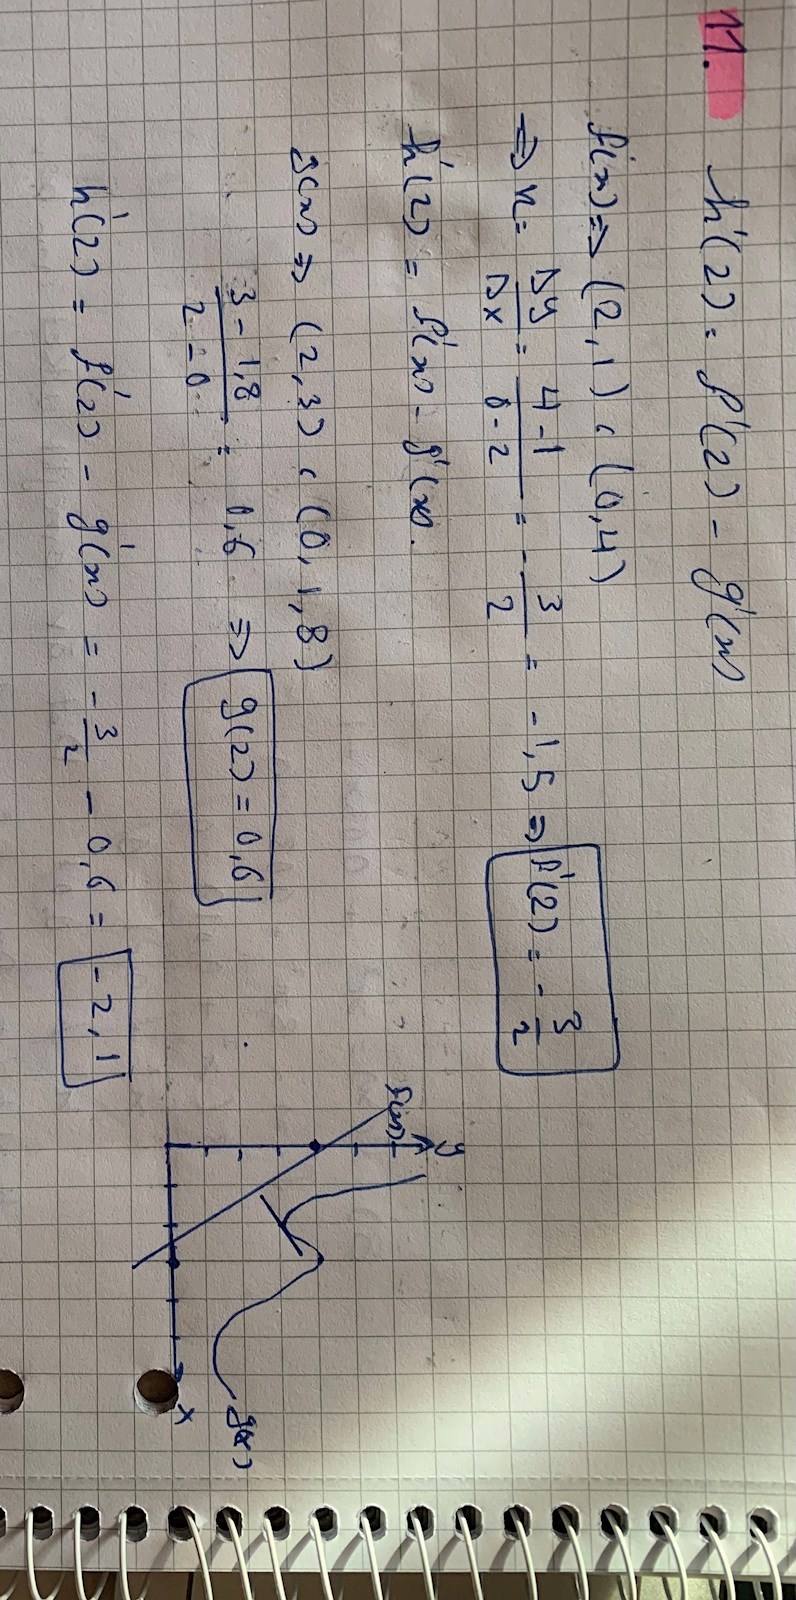 11.
h'(2) = f'(2) - g'(x)
f(x) => (2,1) , (0,4)
=> k = Δy/Δx = 4-1/0-2 = - 3/2 = -1,5 => f'(2) = - 3/2
h'(2) = f'(x) - g'(x).
g(x) => (2,3) , (0, 1,8)
3-1,8/2-0 = 0,6 => g(2) = 0,6
h'(2) = f'(2) - g'(x) = - 3/2 - 0,6 = -2,1
f(x)
y
x
g(x)